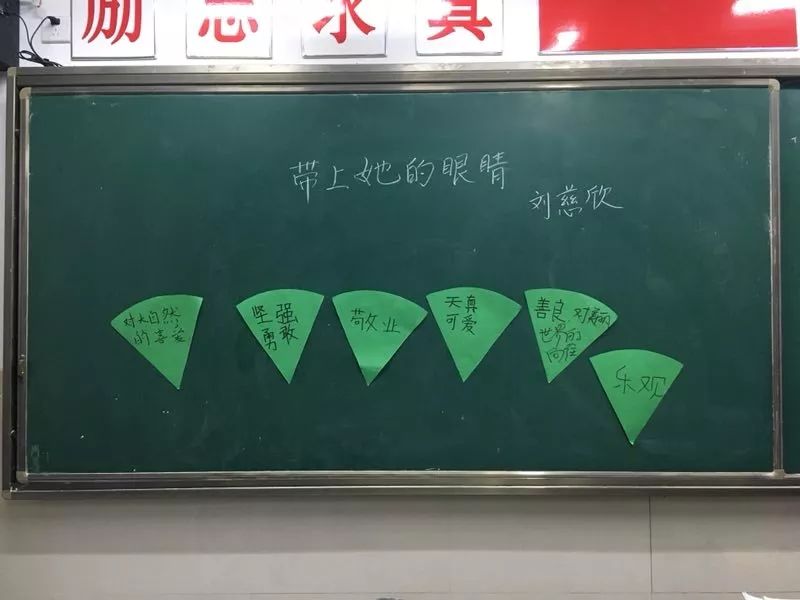 励志求真
带上她的眼睛
刘慈欣
对大自然
的喜爱
坚强
勇敢
敬业
天真
可爱
善良 对美丽
世界的
向往
乐观